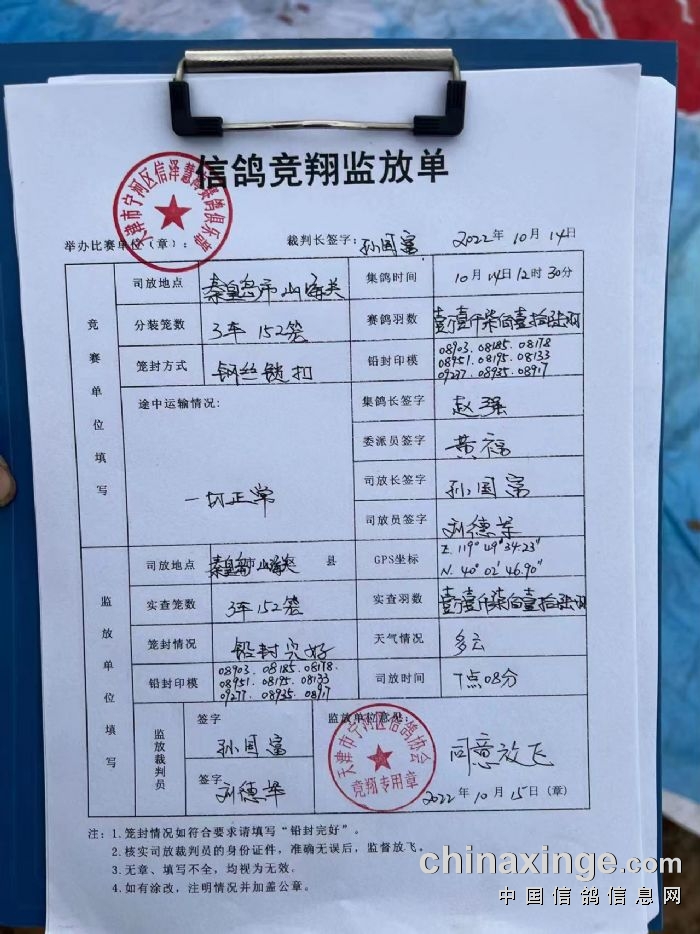 信鸽竞翔监放单
天津市宁河区信泽慧赛鸽俱乐部
举办比赛单位(章): 裁判长签字: 孙国富 2022年10月14日
竞赛单位填写
司放地点 秦皇岛市山海关 集鸽时间 10月14日12时30分
分装笼数 3车152笼 赛鸽羽数
笼封方式 钢丝锁扣 铅封印模 08903.08185.08178
08951.08195.08133
09277.08935.08917
途中运输情况: 集鸽长签字 赵强
委派员签字 黄福
一切正常 司放长签字 孙国富
司放员签字 刘德华
监放单位填写
司放地点 秦皇岛市山海关 县 GPS坐标 E.119°49'34.23"
N.40°02'46.90"
实查笼数 3车152笼 实查羽数
笼封情况 铅封完好 天气情况 多云
铅封印模 08903.08185.08178.
08951.08195.08133
09277.08935.08917
司放时间 7点08分
监放裁判员 签字 孙国富
签字 刘德华
监放单位意见: 同意放飞
天津市宁河区信鸽协会
竞翔专用章
2022年10月15日(章)
注: 1.笼封情况如符合要求请填写“铅封完好”。
2.核实司放裁判员的身份证件,准确无误后,监督放飞。
3.无章、填写不全,均视为无效。
4.如有涂改,注明情况并加盖公章。
chinaxinge.com
中国信鸽信息网